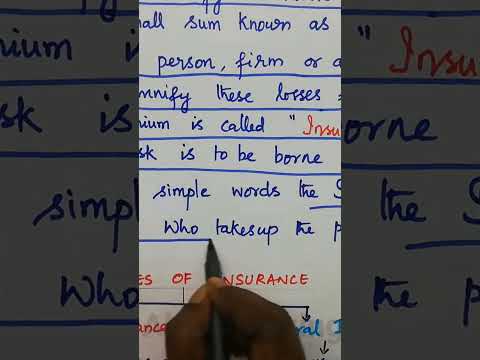 all sum known as
person, firm or a
mnify these losses
nium is called "Insu
sk is to be borne
simple words the S
Who takes up the p
ES OF INSURANCE
ance ral I